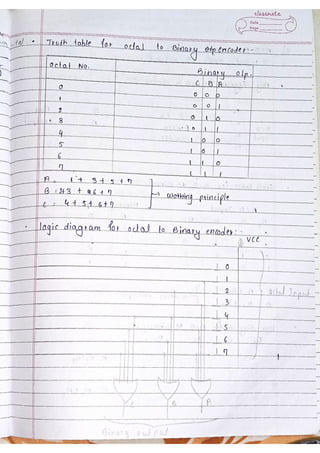 classmate
Date
Page
Truth table for octal to Binary o/p encoder:-
Octal No. Binary o/p.
C B A
0 0 0 0
1 0 0 1
2 0 1 0
3 0 1 1
4 1 0 0
5 1 0 1
6 1 1 0
7 1 1 1
A = 1 + 3 + 5 + 7
B = 2+3 + 6 + 7 → working principle
C = 4 + 5 + 6 + 7
logic diagram for octal to Binary encoder:-
VCC
0
1
2 Octal Input
3
4
5
6
7
C B A
Binary output